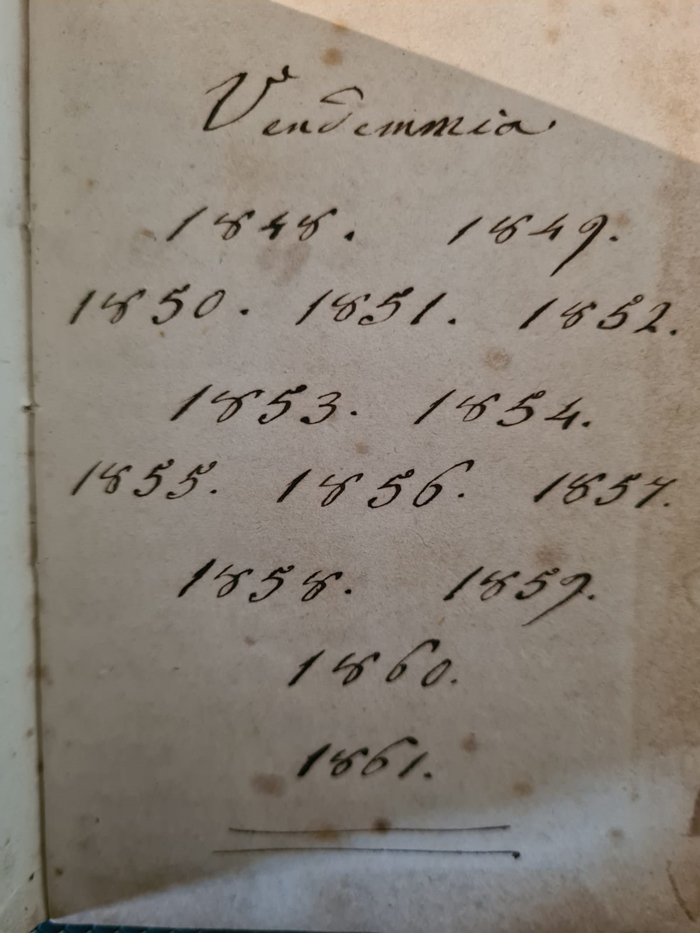 Vendemmia
1848. 1849.
1850. 1851. 1852.
1853. 1854.
1855. 1856. 1857.
1858. 1859.
1860.
1861.